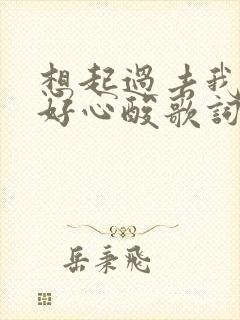 想起過去我
好心酸歌詞
岳秉飛